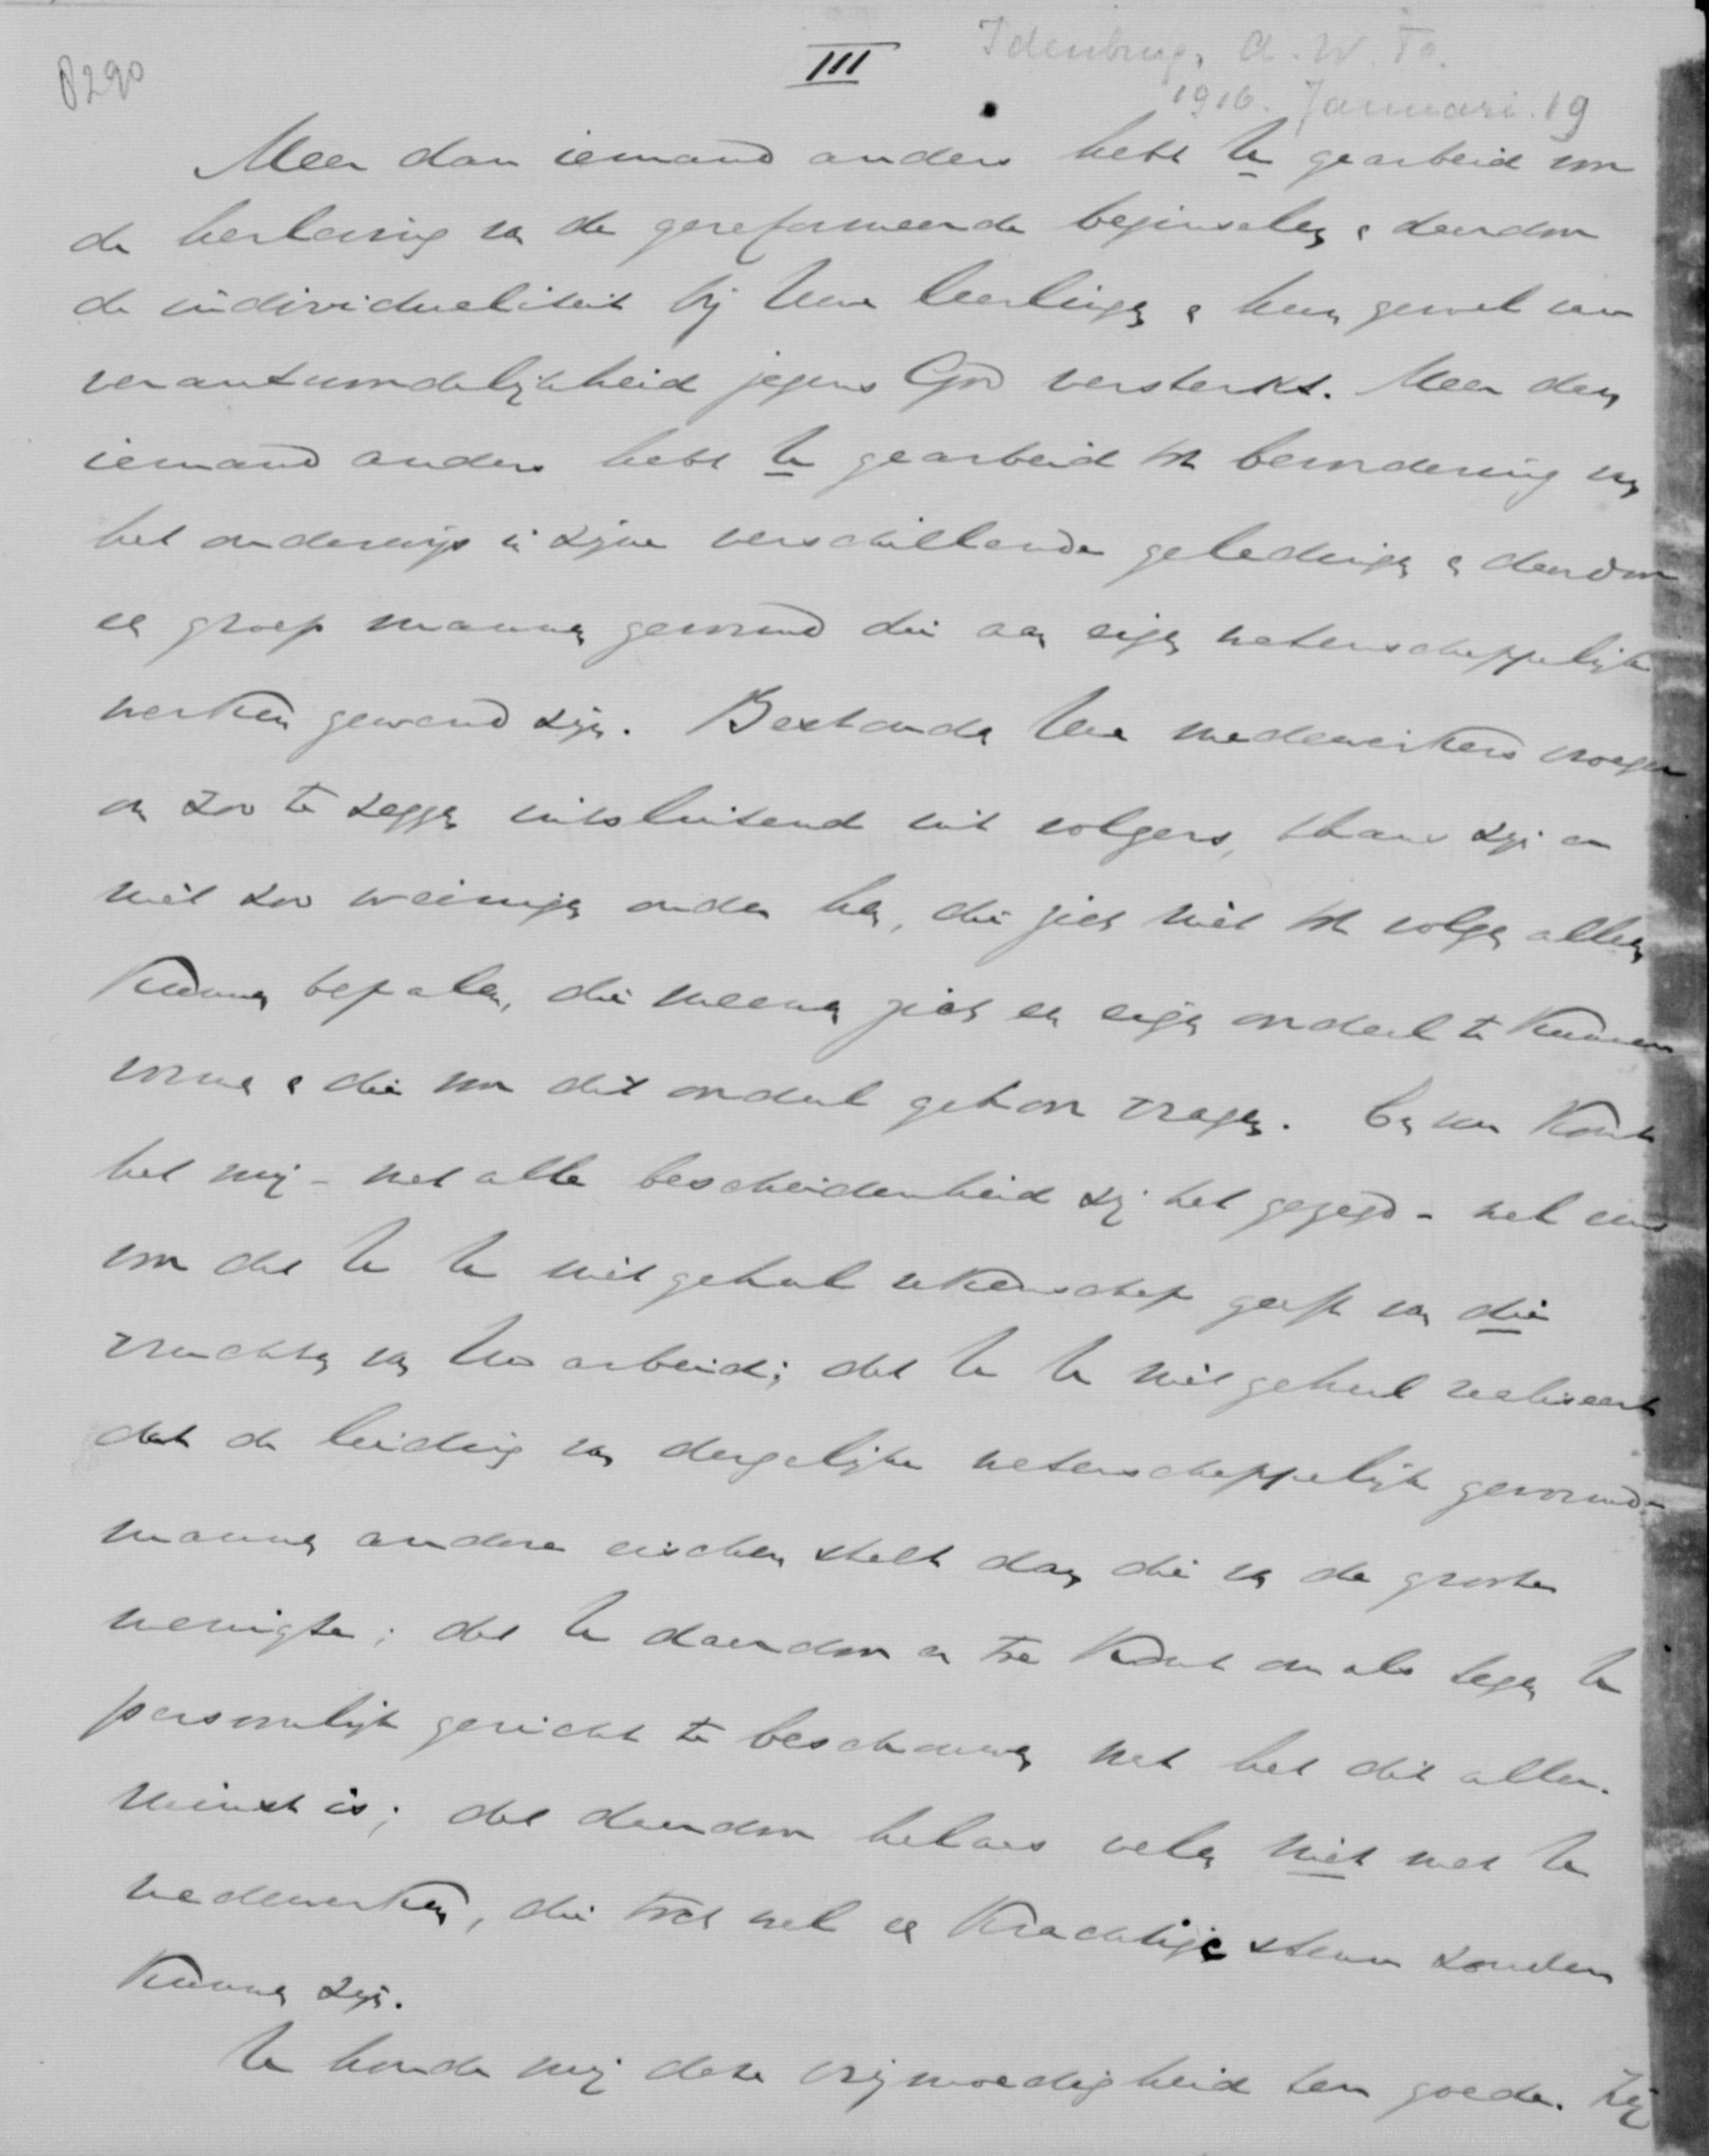 8290
III
Idenburg, A. W. F.
1916. Januari. 19
Meer dan iemand anders hebt U gearbeid om
de herleving van de gereformeerde beginselen & daardoor
de individualiteit bij Uwe leerlingen & hun gevoel van
verantwoordelijkheid jegens God versterkt. Meer dan
iemand anders hebt U gearbeid tot bevordering van
het onderwijs in zijne verschillende geledingen & daardoor
een groep mannen gevormd die aan eigen wetenschappelijk
werken gewend zijn. Bestonden Uwe medewerkers vroeger
om zoo te zeggen uitsluitend uit volgers, thans zijn er
niet zoo weinigen onder hen, die zich niet tot volgen alleen
kunnen bepalen, die meenen zich een eigen oordeel te kunnen
vormen & die om dit oordeel gehoor vragen. En nu komt
het mij - met alle bescheidenheid zij het gezegd - wel eens
voor dat U U niet geheel rekenschap geeft van die
vruchten van Uw arbeid; dat U U niet geheel realiseert
dat de leiding van dergelijke wetenschappelijk gevormde
mannen andere eischen stelt dan die van de groote
menigte; dat U daardoor er toe komt om als tegen U
persoonlijk gericht te beschouwen wat het dit aller-
minst is; dat daardoor helaas velen niet met U
medewerken, die toch wel een krachtige steun zouden
kunnen zijn.
U houde mij deze vrijmoedigheid ten goede. Zij